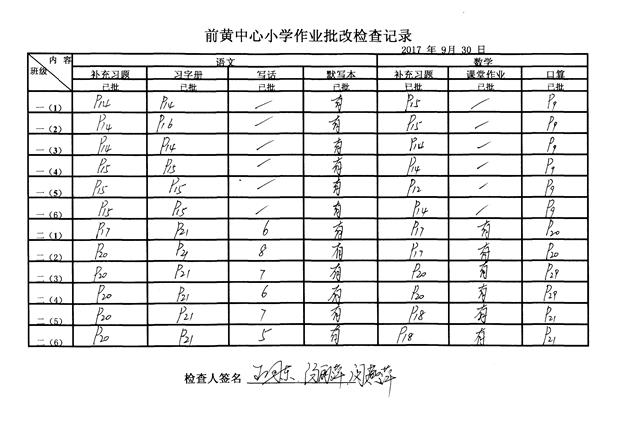 前黄中心小学作业批改检查记录
2017 年 9月 30 日
内 容 语文 数学
班级 补充习题 习字册 写话 默写本 补充习题 课堂作业 口算
已批 已批 已批 已批 已批 已批 已批
一（1） P14 P14 / 有 P15 / P9
一（2） P14 P16 / 有 P15 / P9
一（3） P14 P14 / 有 P14 / P9
一（4） P15 P15 / 有 P14 / P9
一（5） P15 P15 / 有 P12 / P9
一（6） P15 P15 / 有 P14 / P9
二（1） P17 P21 6 有 P17 有 P20
二（2） P20 P21 8 有 P17 有 P20
二（3） P20 P21 7 有 P20 有 P29
二（4） P20 P21 6 有 P20 有 P29
二（5） P20 P21 7 有 P18 有 P21
二（6） P20 P21 5 有 P18 有 P21
检查人签名